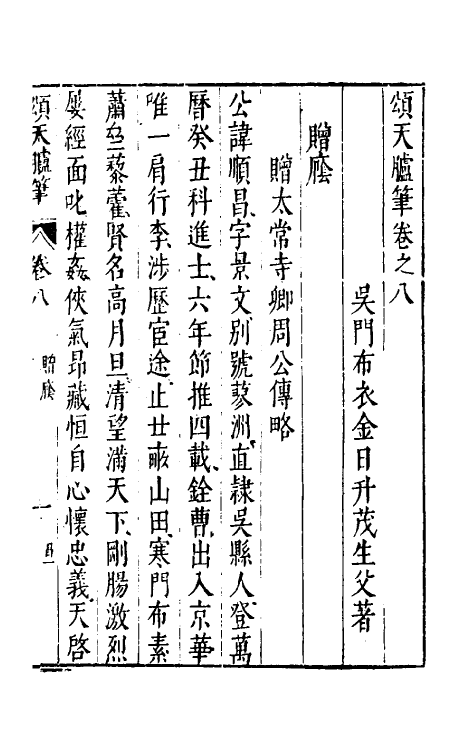 頌天臚筆卷之八
吳門布衣金日升茂生父著
贈廕
贈太常寺卿周公傳略
公諱順昌、字景文、别號蓼洲、直隷吳縣人、登萬
曆癸丑科進士、六年節推、四載銓曹、出入京華
唯一肩行李、涉歷宦途、止廿畝山田、寒門布素
蕭然藜藿、賢名高月旦、清望滿天下、剛腸激烈
屢經面叱權姦、俠氣昂藏、恒自心懷忠義、天啓
頌天臚筆 卷八 贈廕 一